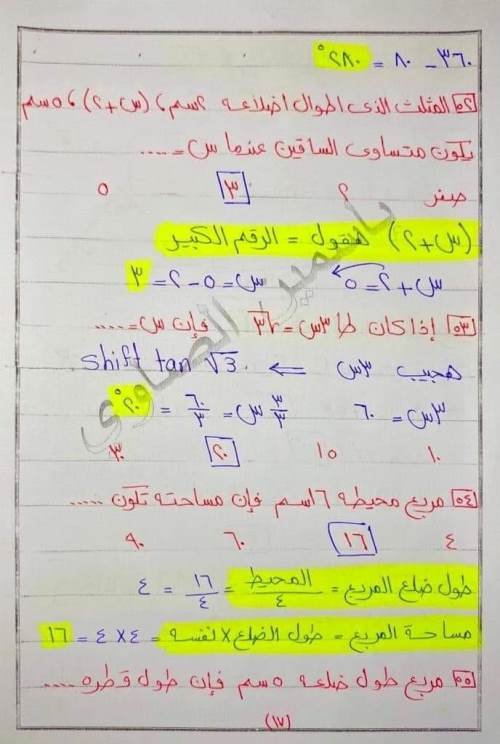 ٣٦٠ - ٨٠ = ٢٨٠°
٥٢ المثلث الذى اطوال اضلاعه ٢سم ، (س+٢) ، ٥سم
يكون متساوى الساقين عندما س = ....
صفر ٢ ٣ ٥
(س+٢) هنقول = الرقم الكبير
س+٢=٥ س=٥-٢=٣
٥٣ إذا كان طا٣س=√٣ فإن س=....
هجيب ٣س ⇐ shift tan √3
٣س=٦٠ ٣/٣ س=٦٠/٣=٢٠°
١٠ ١٥ ٢٠ ٣٠
٥٤ مربع محيطه ١٦سم فإن مساحته تكون .....
٤ ١٦ ٦٠ ٩٠
طول ضلع المربع = المحيط/٤ = ١٦/٤ = ٤
مساحة المربع = طول الضلع × نفسه = ٤×٤ = ١٦
٥٥ مربع طول ضلعه ٥سم فإن طول قطره ....
(١٧)
ياسمين الصاوى